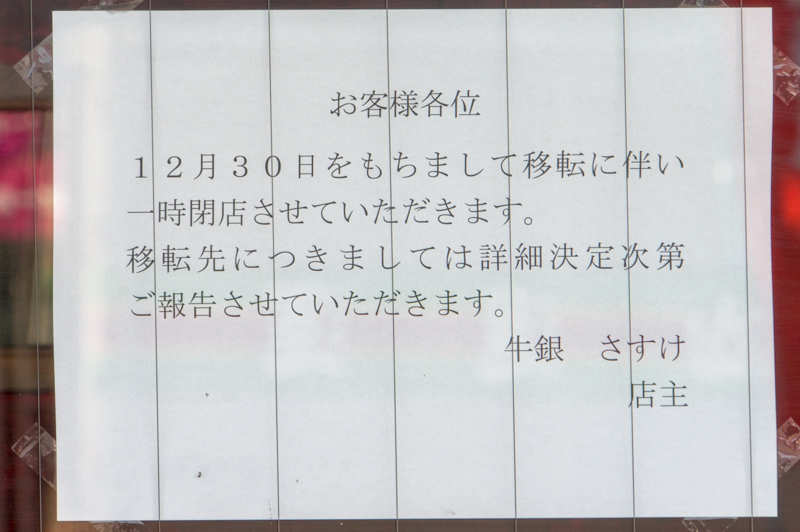 お客様各位
１２月３０日をもちまして移転に伴い
一時閉店させていただきます。
移転先につきましては詳細決定次第
ご報告させていただきます。
牛銀　さすけ
店主